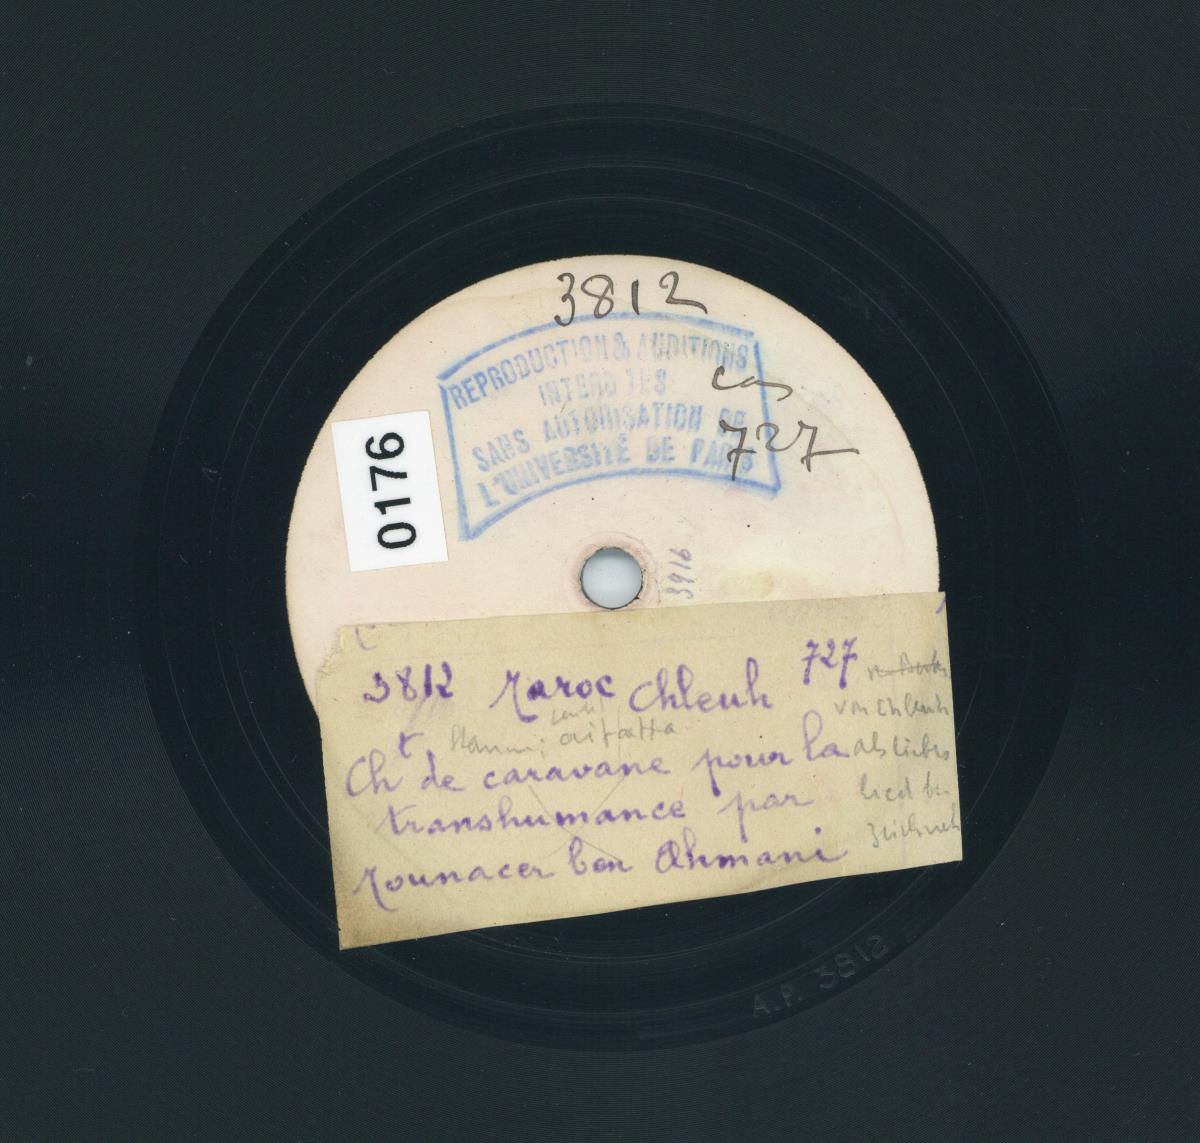 3812
REPRODUCTION & AUDITIONS
INTERDITES
SANS AUTORISATION DE
L'UNIVERSITÉ DE PARIS
cas
727
0176
3916
3812 Maroc Chleuh 727
von Chleuh
Stamm: aït atta
Cht de caravane pour la
als liebes
transhumance par
lied be
zeichnet
Mounacer ben Ahmani
A.P. 3812